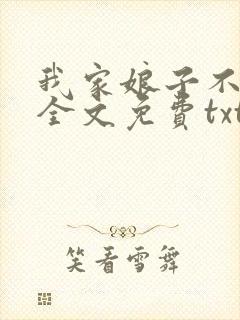 我家娘子不
全文免费txt
笑看雪舞